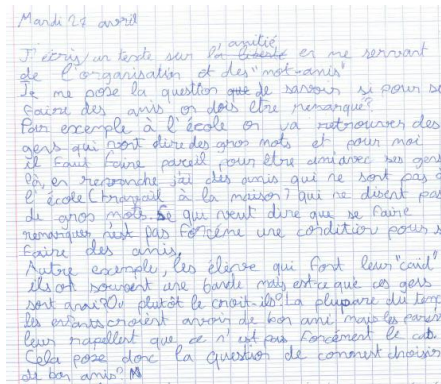 Mardi 27 avril
J'écris un texte sur l'amitié en me servant
de l'organisation et des "mot-amis"
Je me pose la question de savoir si pour se
faire des amis on dois être remarqué?
Par exemple à l'école on va retrouver des
gens qui vont dire des gros mots et pour moi
il faut faire pareil pour être ami avec ses gens
là, en revanche j'ai des amis qui ne sont pas à
l'école ( à la maison) qui ne disent pas
de gros mots. Ce qui veut dire que se faire
remarquer n'est pas forcéme une condition pour s
faire des amis.
Autre exemple, les élève qui font leur "caïd"
ils on souvent une bande mais est-ce que ces gens
sont vrai? Ou plutôt le croit-ils? La plupare du temp
les enfants croient avoir de bon ami mais les parent
leur rapellent que ce n'est pas forcément le cas.
Cela pose donc la question de comment choisir
de bon amis?